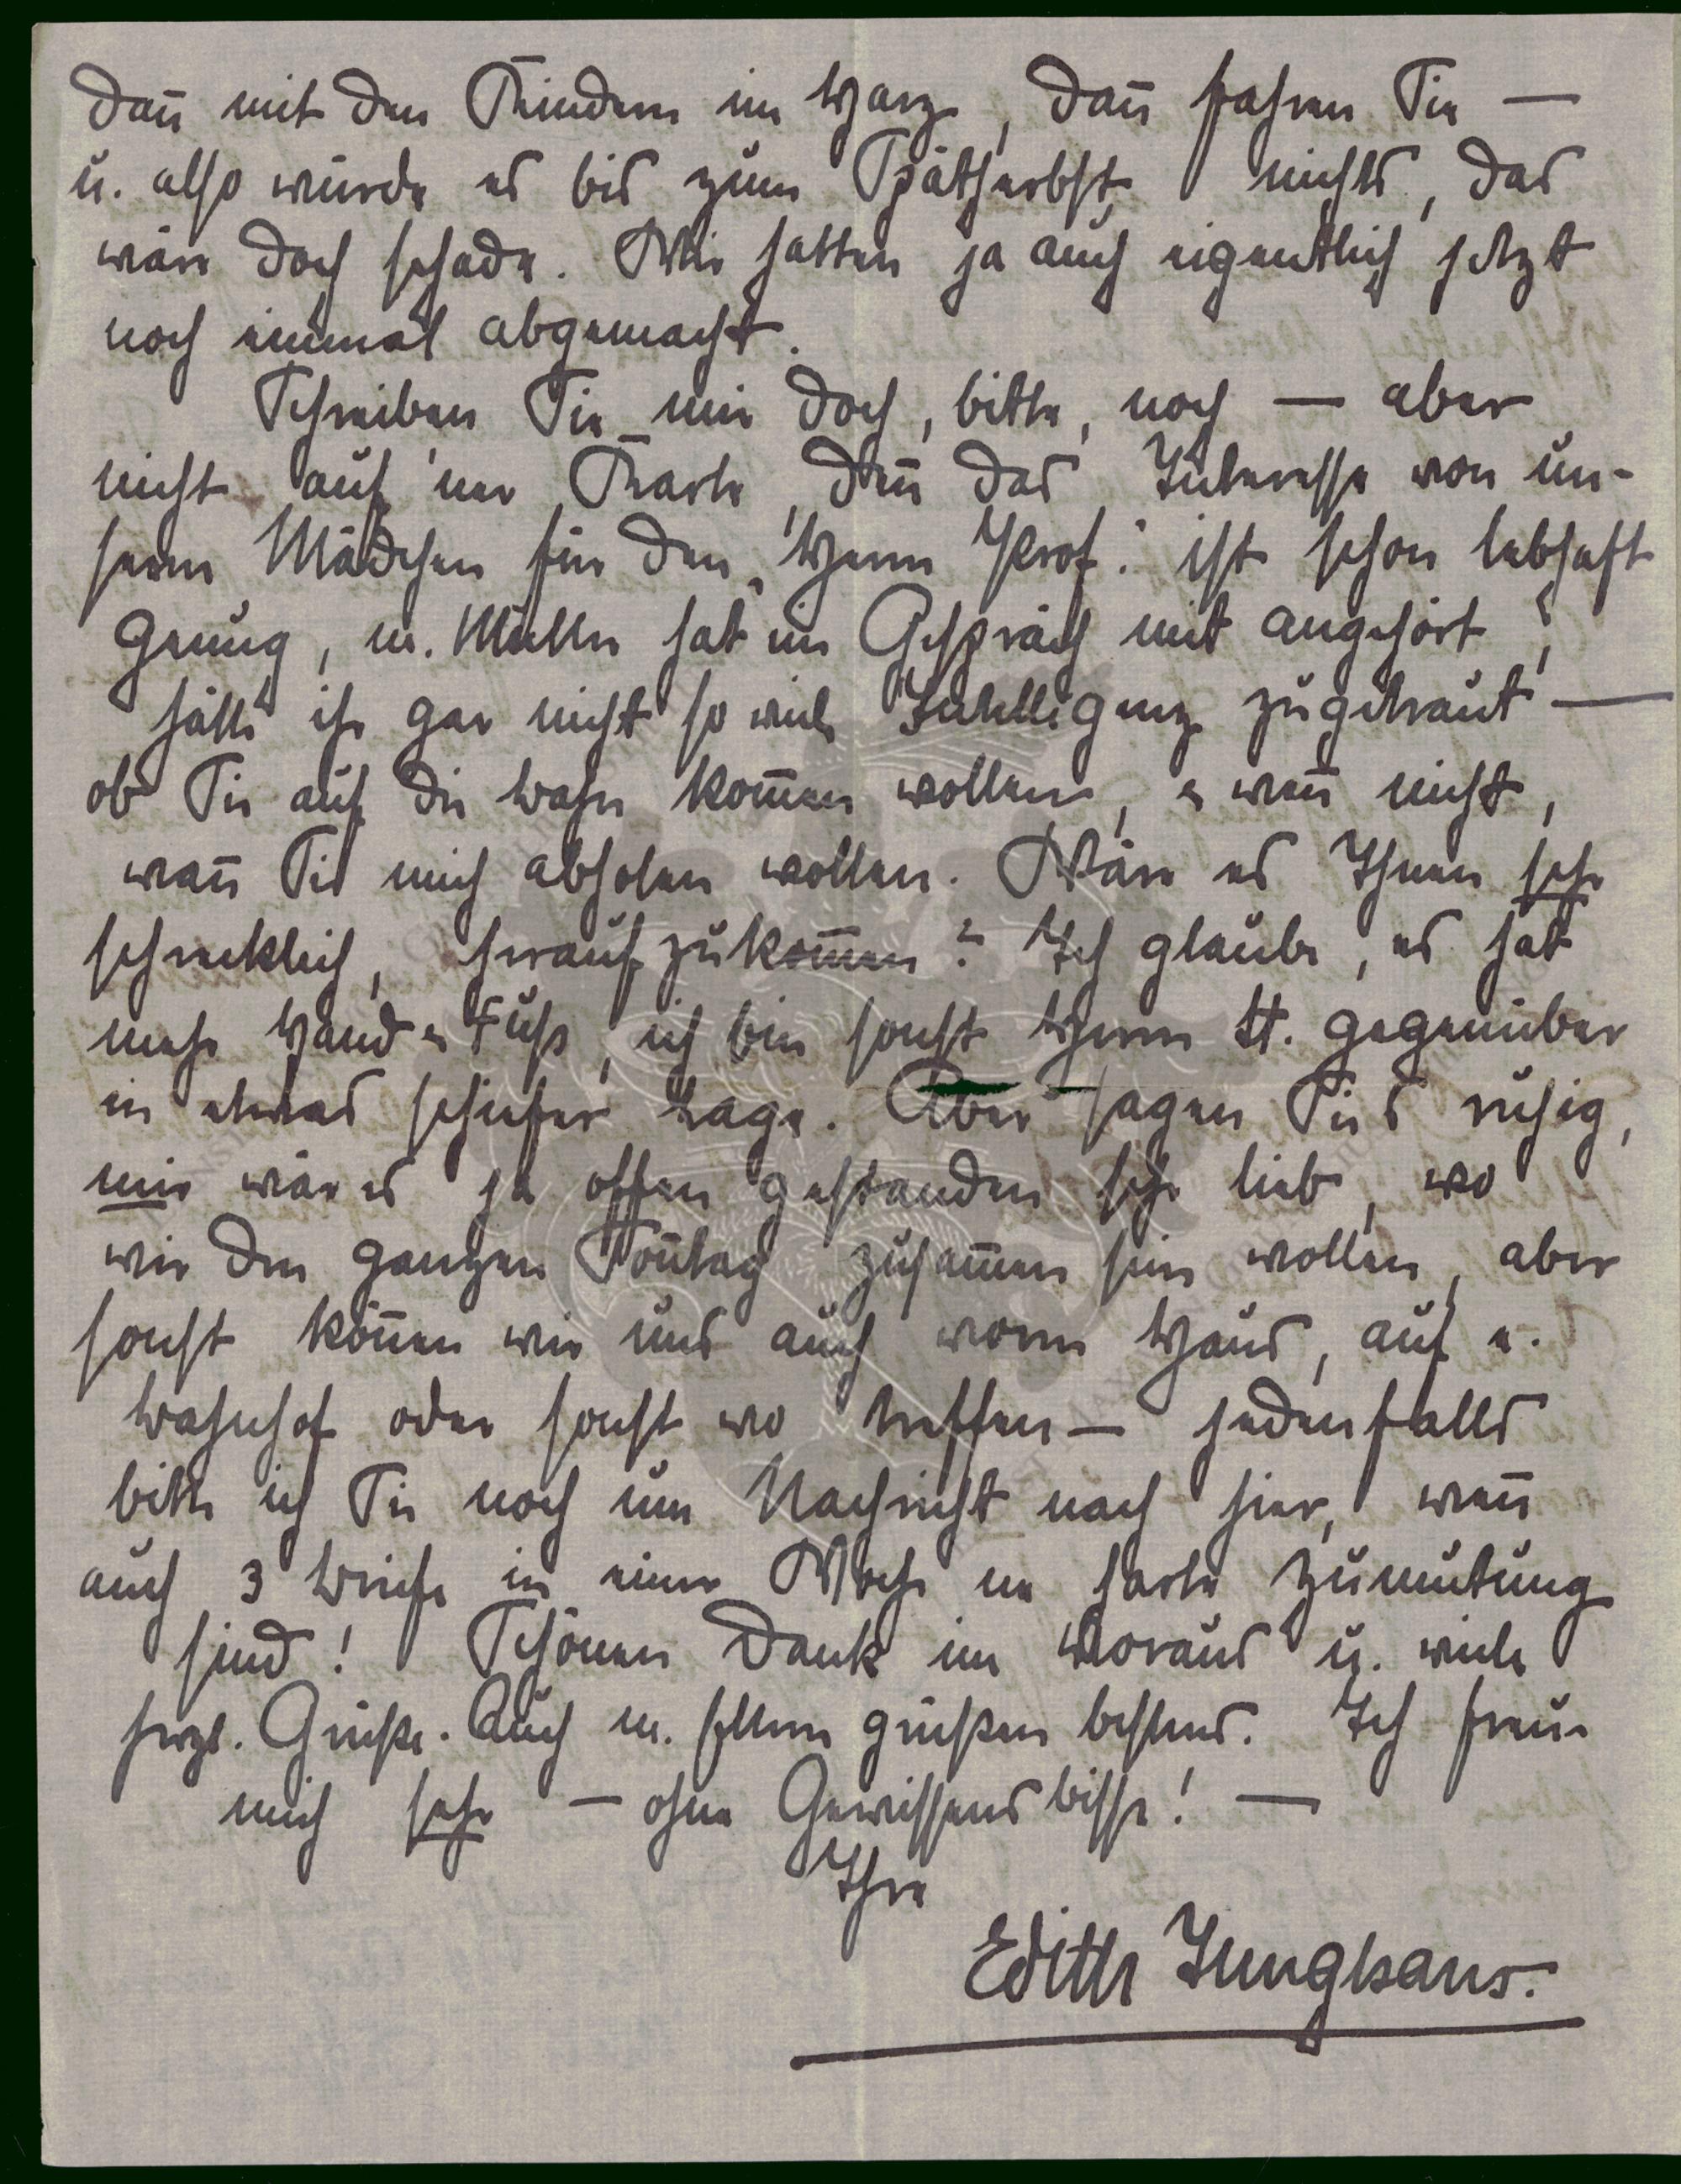 dan̄ mit den Kindern im Harz, dan̄ fahren Sie —
u. also würde es bis zum Spätherbst nichts, das
wäre doch schade. Wir hatten ja auch eigentlich jetzt
noch einmal abgemacht.
Schreiben Sie mir doch, bitte, noch — aber
nicht auf 'ner Karte, den̄ das Interesse von un-
serm Mädchen für den „Herrn Prof." ist schon lebhaft
genug, m. Mutter hat ein Gespräch mit angehört,
hätte ihr gar nicht so viel Intelligenz zugetraut —
ob Sie auf die Bahn kom̄en wollen, u wen̄ nicht,
wan̄ Sie mich abholen wollen. Wäre es Ihnen sehr
schrecklich, heraufzukom̄en? Ich glaube, es hat
mehr Hand u Fuß, ich bin sonst Herrn St. gegenüber
in etwas schiefer Lage. Aber sagen Sie's ruhig,
mir wär es ja offen gestanden sehr lieb, wo
wir den ganzen Son̄tag zusam̄en sein wollen, aber
sonst kön̄en wir uns auch vorm Haus, auf e.
Bahnhof oder sonst wo treffen — jedenfalls
bitte ich Sie noch um Nachricht nach hier, wen̄
auch 3 Briefe in einer Woche ne harte Zumutung
sind! Schönen Dank im Voraus u. viele
herzl. Grüße. Auch m. Eltern grüßen bestens. Ich freue
mich sehr — ohne Gewissensbisse! —
Ihre
Edith Junghans.